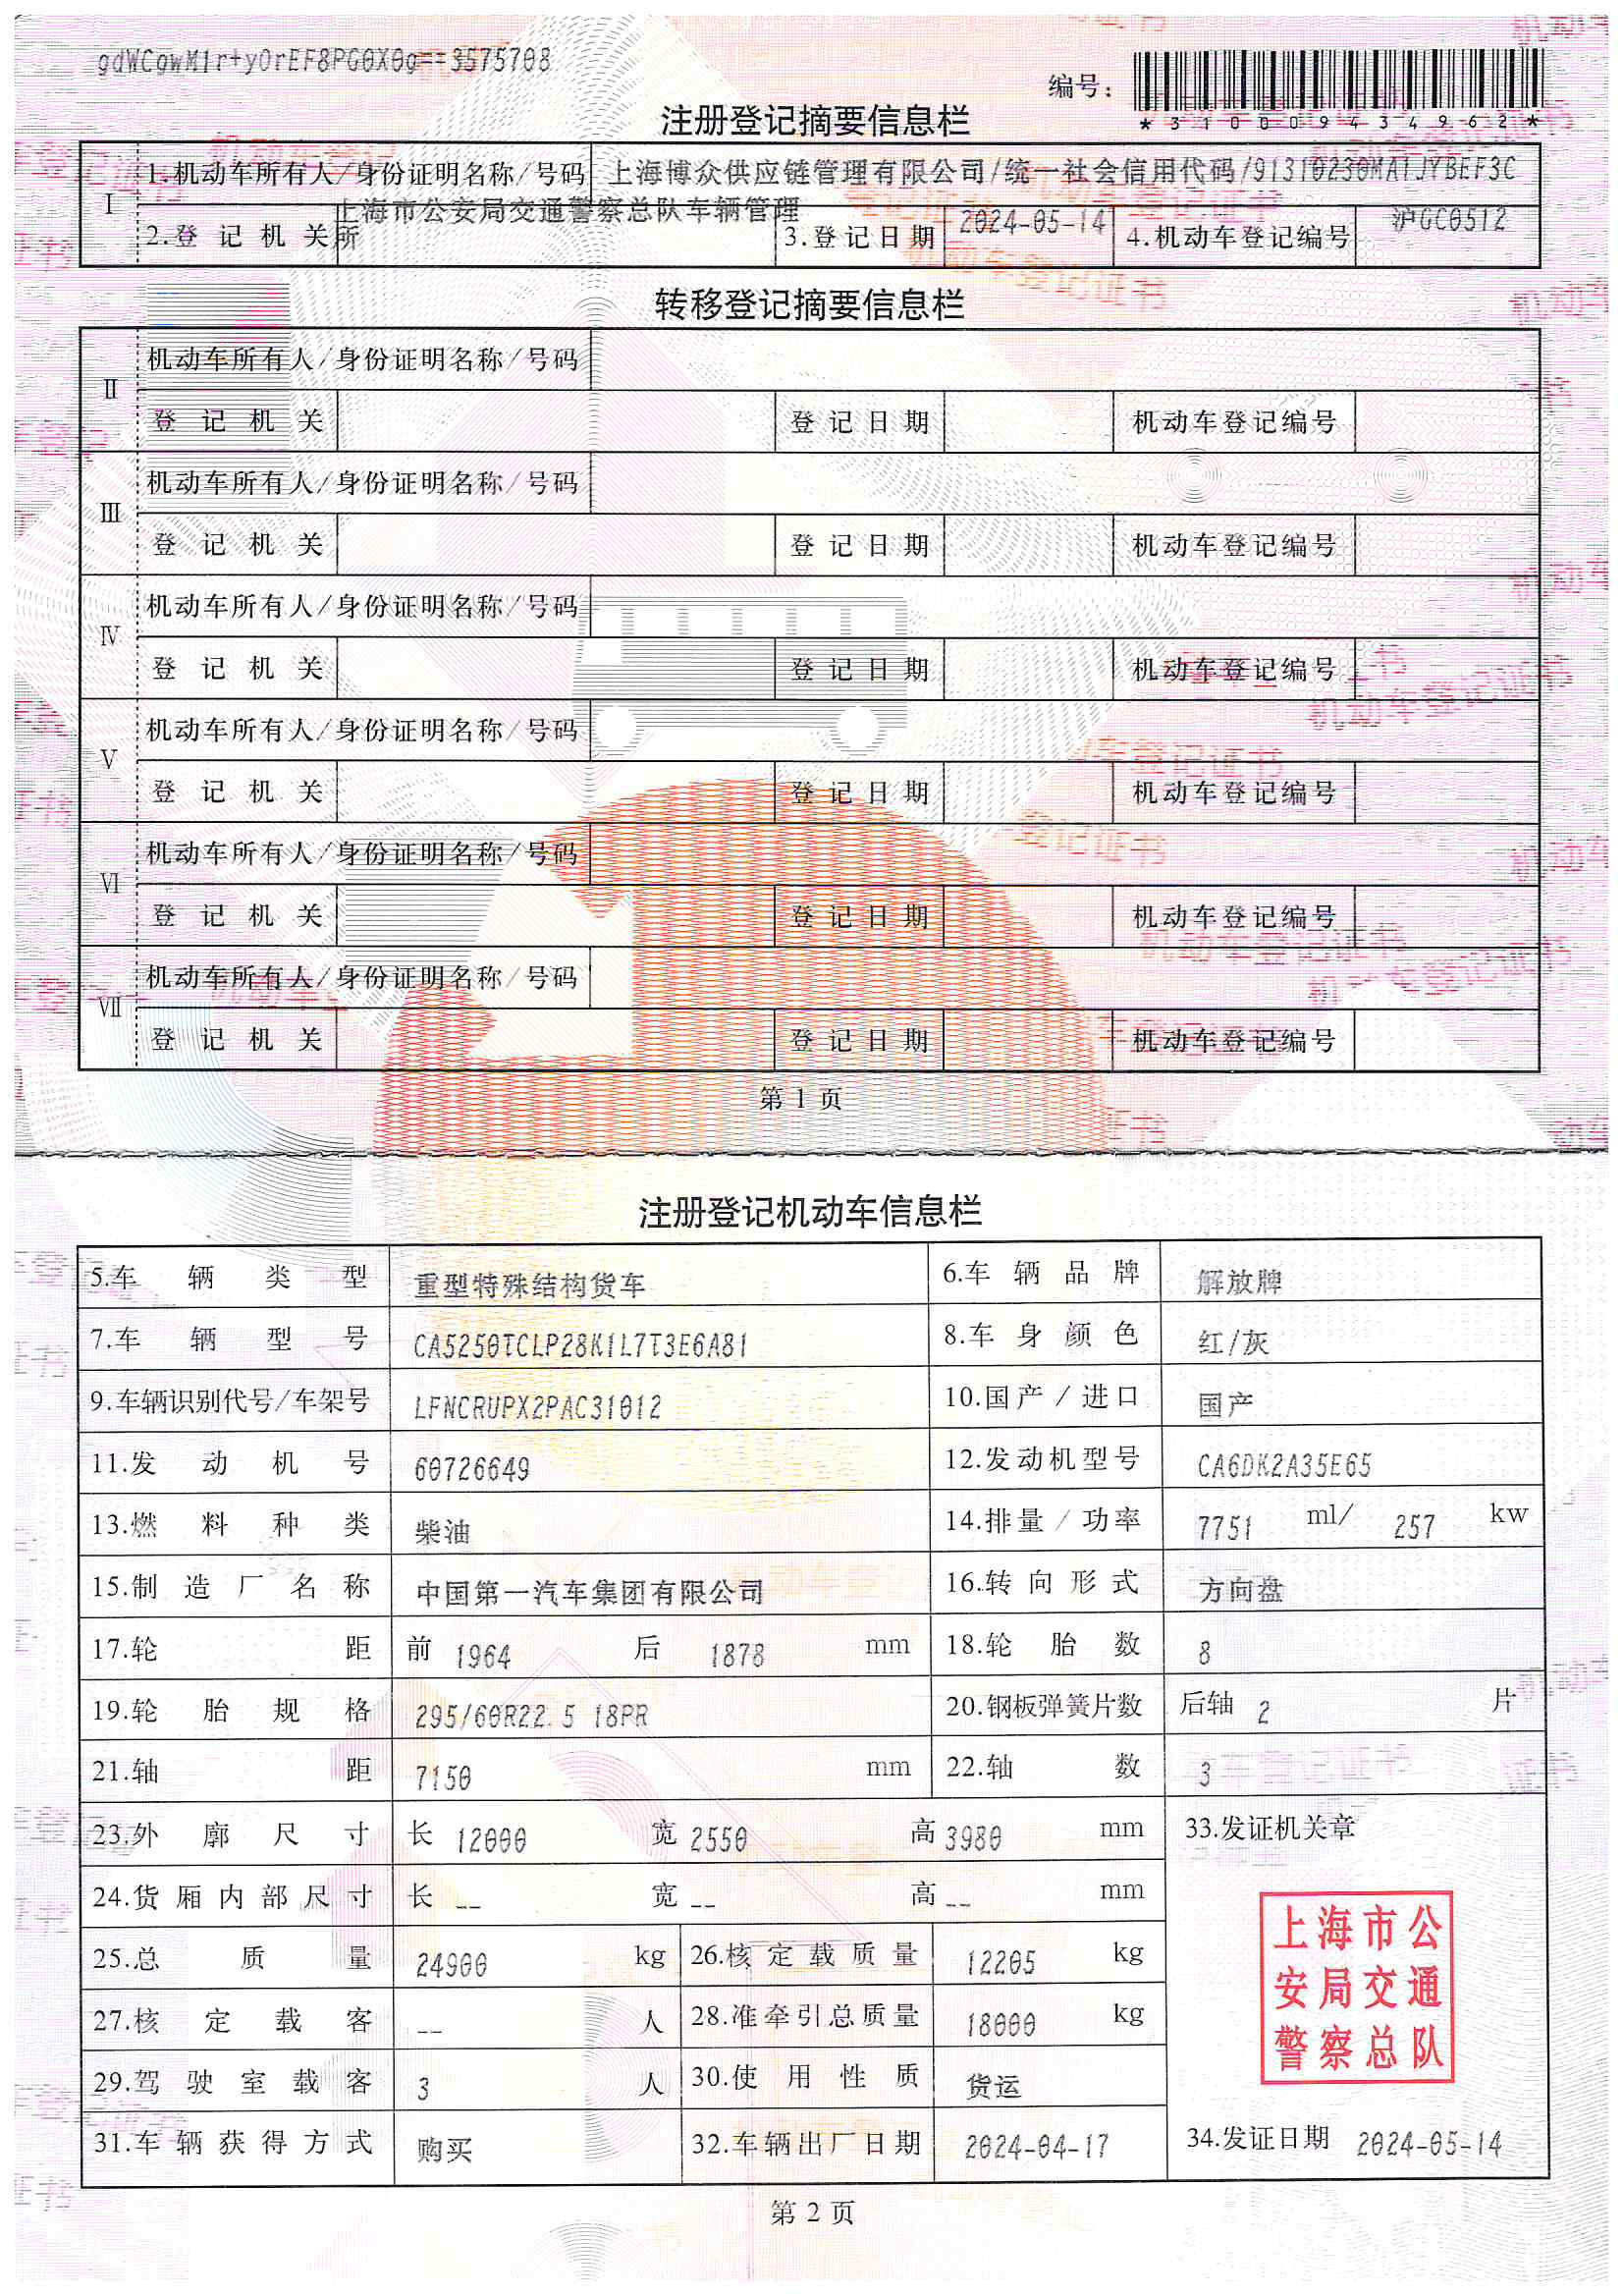 gdWCgwM1r+yOrEF8PG0X0g==3575708
编号：
*310009434962*
注册登记摘要信息栏
I
1.机动车所有人/身份证明名称/号码 上海博众供应链管理有限公司/统一社会信用代码/91310230MA1JYBEF3C
2.登记机关 上海市公安局交通警察总队车辆管理所 3.登记日期 2024-05-14 4.机动车登记编号 沪GC0512
转移登记摘要信息栏
II
机动车所有人/身份证明名称/号码
登记机关 登记日期 机动车登记编号
III
机动车所有人/身份证明名称/号码
登记机关 登记日期 机动车登记编号
IV
机动车所有人/身份证明名称/号码
登记机关 登记日期 机动车登记编号
V
机动车所有人/身份证明名称/号码
登记机关 登记日期 机动车登记编号
VI
机动车所有人/身份证明名称/号码
登记机关 登记日期 机动车登记编号
VII
机动车所有人/身份证明名称/号码
登记机关 登记日期 机动车登记编号
第 1 页
注册登记机动车信息栏
5.车辆类型 重型特殊结构货车 6.车辆品牌 解放牌
7.车辆型号 CA5250TCLP28K1L7T3E6A81 8.车身颜色 红/灰
9.车辆识别代号/车架号 LFNCRUPX2PAC31012 10.国产/进口 国产
11.发动机号 60726649 12.发动机型号 CA6DK2A35E65
13.燃料种类 柴油 14.排量/功率 7751 ml/ 257 kw
15.制造厂名称 中国第一汽车集团有限公司 16.转向形式 方向盘
17.轮距 前 1964 后 1878 mm 18.轮胎数 8
19.轮胎规格 295/60R22.5 18PR 20.钢板弹簧片数 后轴 2 片
21.轴距 7150 mm 22.轴数 3
23.外廓尺寸 长 12000 宽 2550 高 3980 mm 33.发证机关章
24.货厢内部尺寸 长 -- 宽 -- 高 -- mm
25.总质量 24900 kg 26.核定载质量 12205 kg
27.核定载客 -- 人 28.准牵引总质量 18000 kg
29.驾驶室载客 3 人 30.使用性质 货运
上海市公
安局交通
警察总队
31.车辆获得方式 购买 32.车辆出厂日期 2024-04-17 34.发证日期 2024-05-14
第 2 页